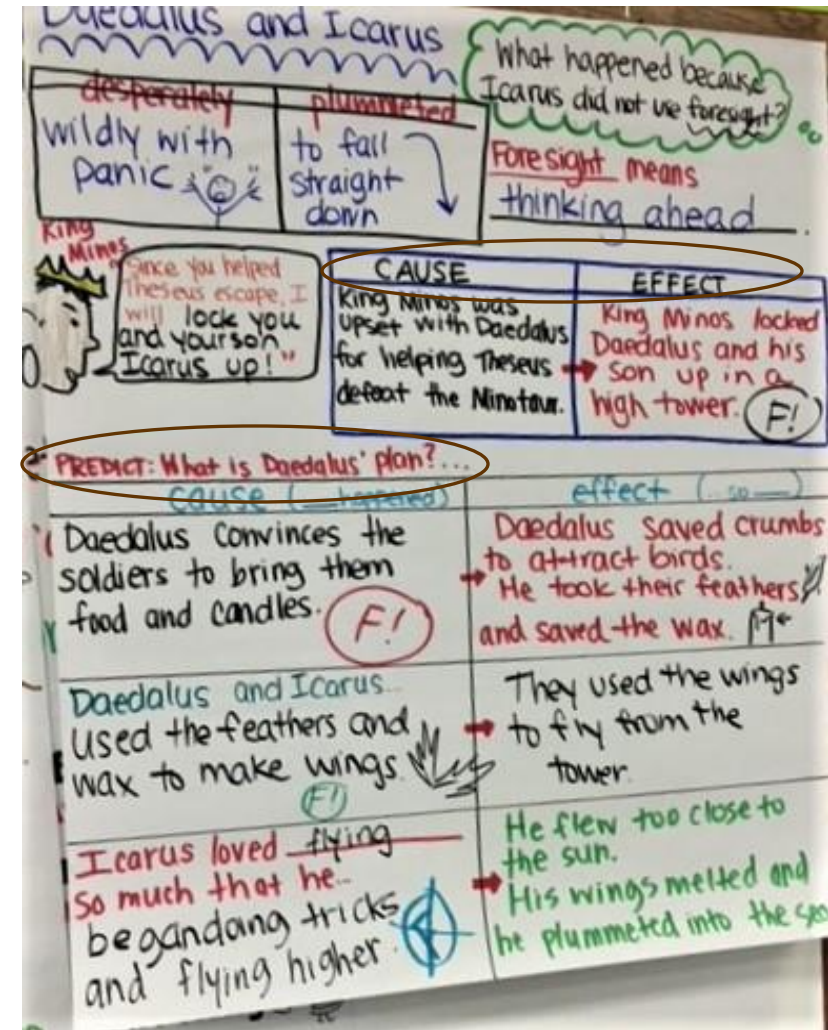 Daedalus and Icarus
What happened because
Icarus did not use foresight?
desperately
wildly with
panic
plummeted
to fall
straight
down
Foresight means
thinking ahead.
King
Minos
"Since you helped
Theseus escape, I
will lock you
and your son
Icarus up!"
CAUSE
King Minos was
upset with Daedalus
for helping Theseus
defeat the Minotaur.
EFFECT
King Minos locked
Daedalus and his
son up in a
high tower.
F!
PREDICT: What is Daedalus' plan?...
cause (__happened)
effect (...so __)
Daedalus convinces the
soldiers to bring them
food and candles.
F!
Daedalus saved crumbs
to attract birds.
He took their feathers
and saved the wax.
Daedalus and Icarus...
used the feathers and
wax to make wings.
F!
They used the wings
to fly from the
tower.
Icarus loved flying
so much that he...
began doing tricks
and flying higher.
He flew too close to
the sun.
His wings melted and
he plummeted into the sea